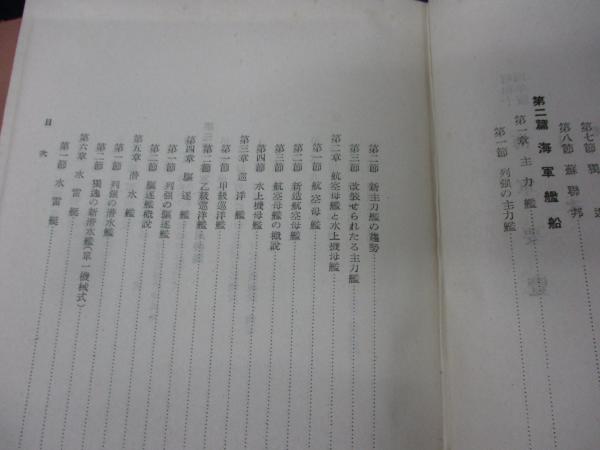 第七節 獨逸
第八節 蘇聯邦
第二篇 海軍艦船
第一章 主力艦
第一節 列强の主力艦
第二節 新主力艦の趨勢
第三節 改裝せられたる主力艦
第二章 航空母艦と水上機母艦
第一節 航空母艦
第二節 新造航空母艦
第三節 航空母艦の概説
第四節 水上機母艦
第三章 巡洋艦
第一節 甲級巡洋艦
第二節 乙級巡洋艦
第四章 驅逐艦
第一節 列强の驅逐艦
第二節 驅逐艦概説
第五章 潜水艦
第一節 列强の潜水艦
第二節 獨逸の新潜水艦(單一機械式)
第六章 水雷艇
第一節 水雷艇
目次